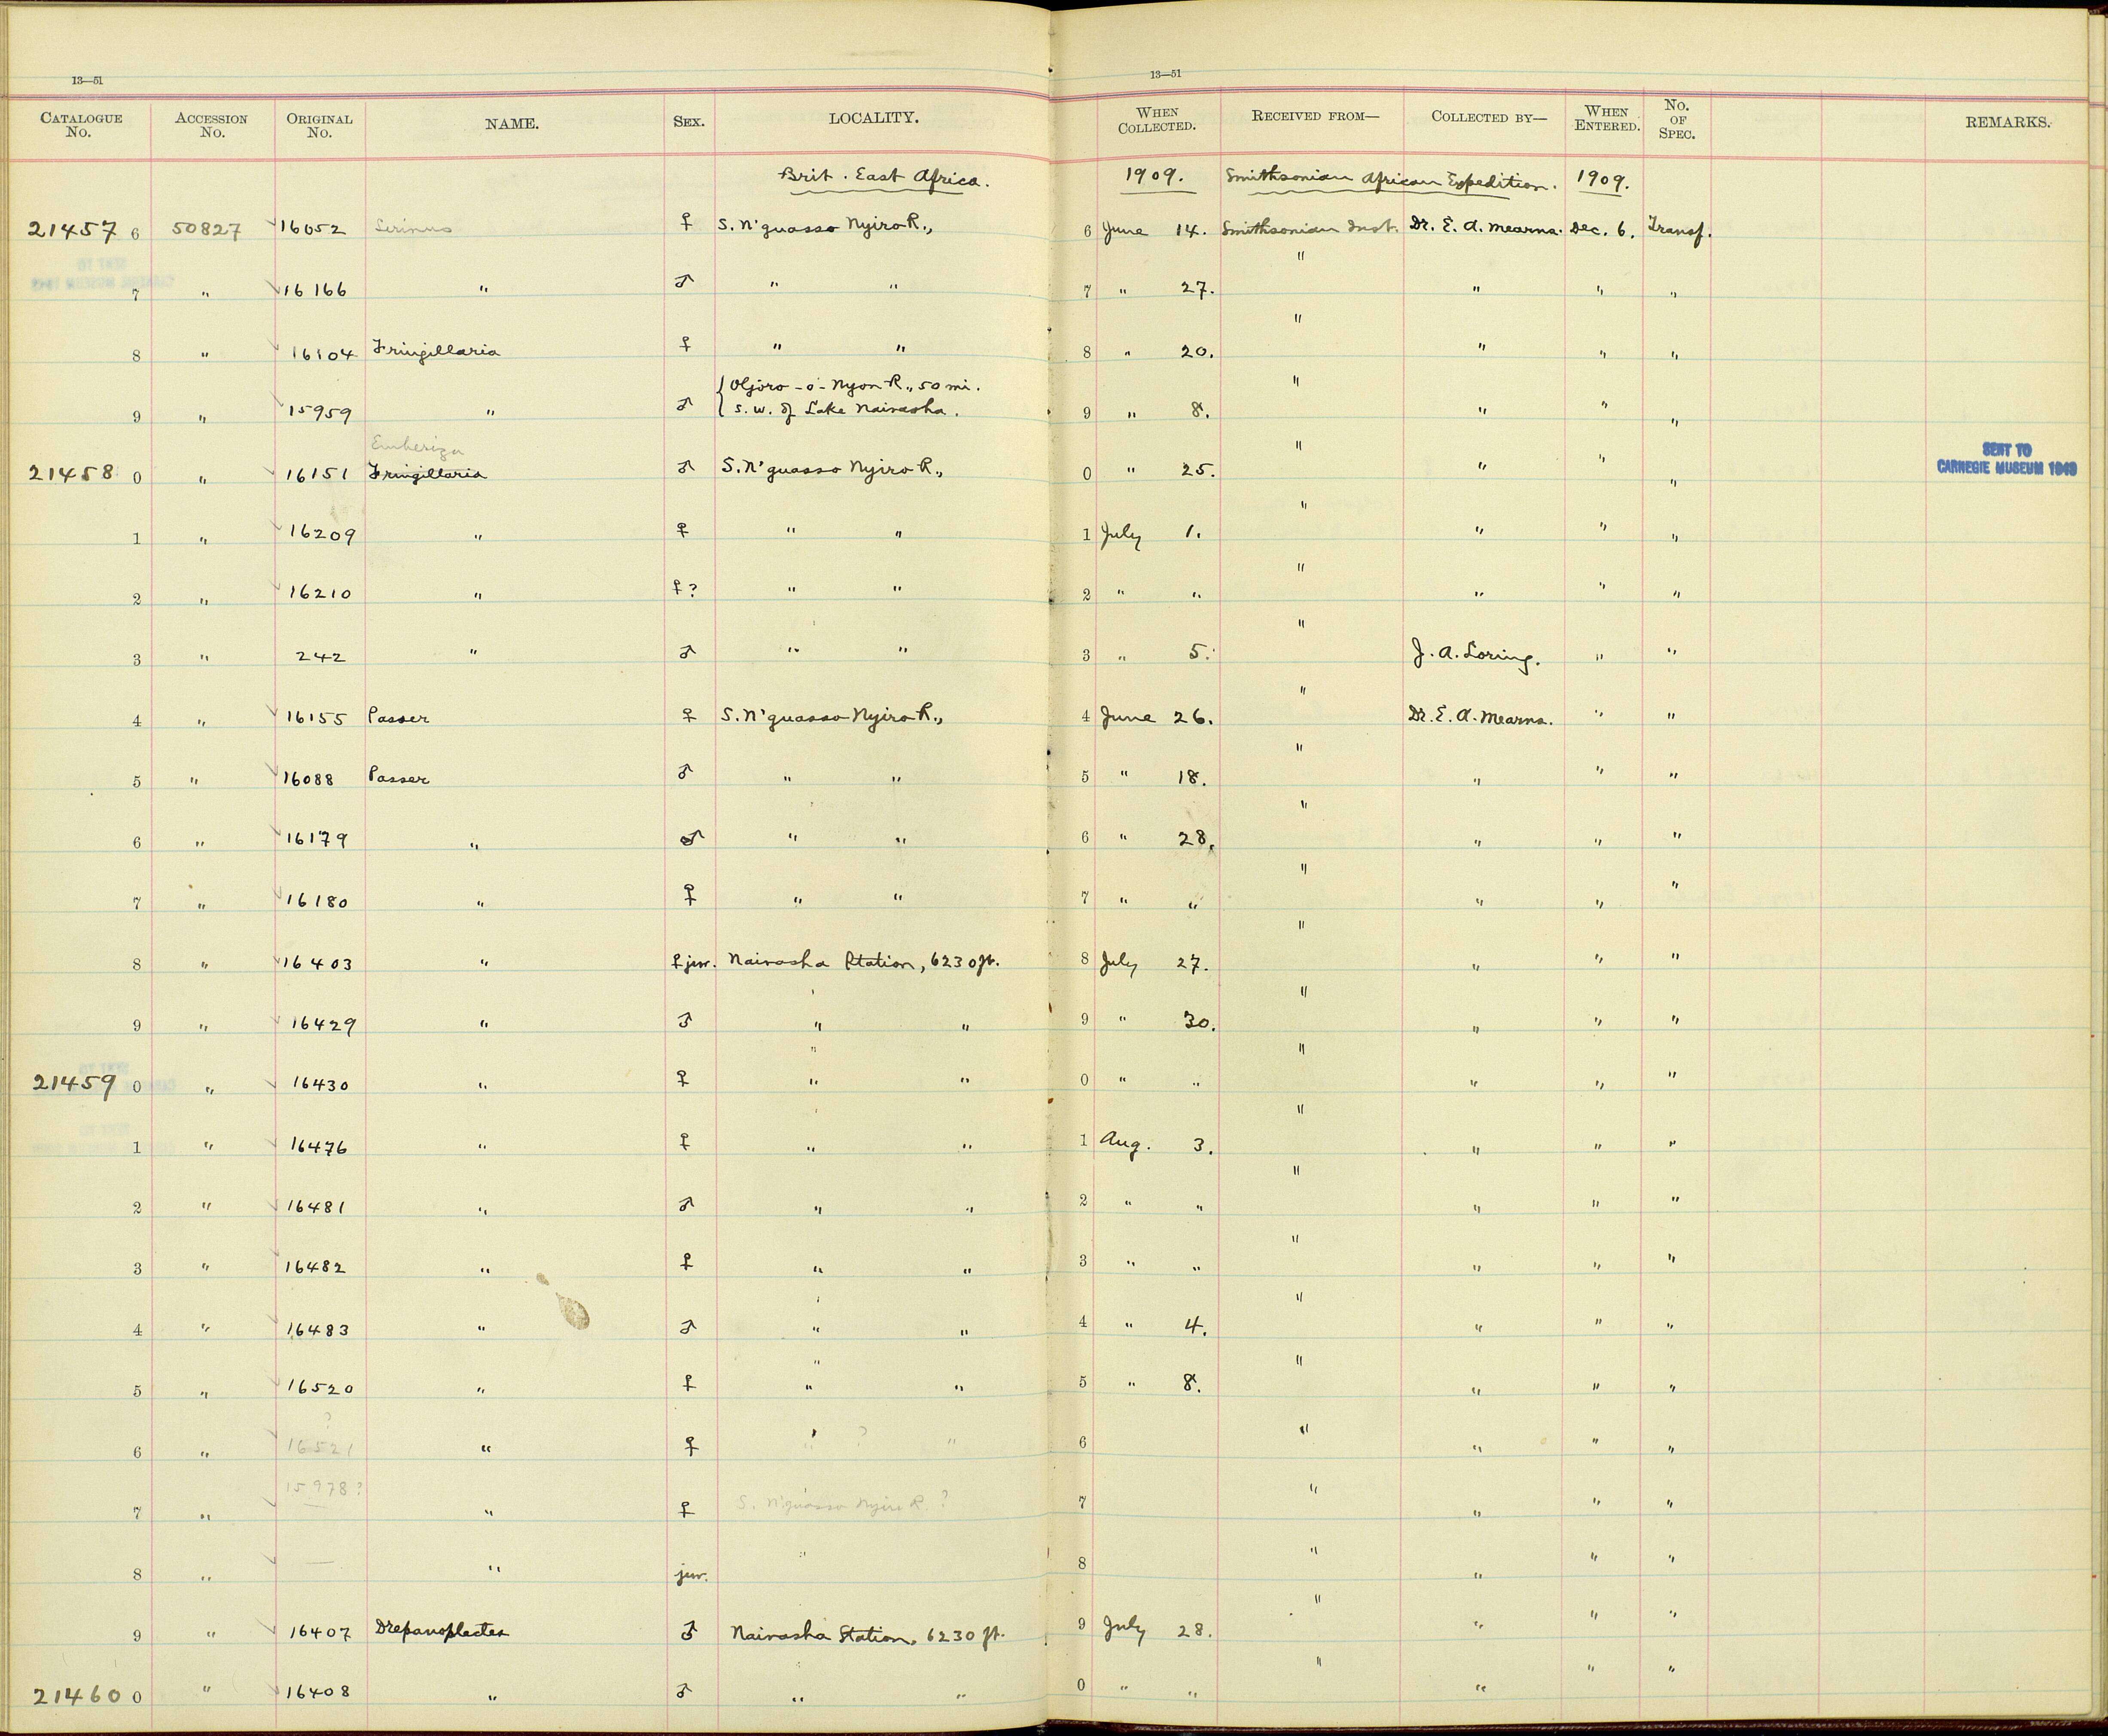 13—51
13—51
CATALOGUE No. ACCESSION No. ORIGINAL No. NAME. SEX. LOCALITY. WHEN COLLECTED. RECEIVED FROM— COLLECTED BY— WHEN ENTERED. No. OF SPEC. REMARKS.
Brit. East Africa. 1909. Smithsonian African Expedition. 1909.
21457 6 50827 16052 Serinus ♀ S. N'guasso Nyiro R., 6 June 14. Smithsonian Inst. Dr. E. A. Mearns. Dec. 6. Transf.
7 " 16166 " ♂ " " 7 " 27. " " " "
8 " 16104 Fringillaria ♀ " " 8 " 20. " " " "
9 " 15959 " ♂ { Oljoro-o-Nyon R., 50 mi.
s. w. of Lake Naivasha. 9 " 8. " " " "
Emberiza
21458 0 " 16151 Fringillaria ♂ S. N'guasso Nyiro R., 0 " 25. " " " " SENT TO
CARNEGIE MUSEUM 1949
1 " 16209 " ♀ " " 1 July 1. " " " "
2 " 16210 " ♀? " " 2 " " " " " "
3 " 242 " ♂ " " 3 " 5. " J. A. Loring. " "
4 " 16155 Passer ♀ S. N'guasso Nyiro R., 4 June 26. " Dr. E. A. Mearns. " "
5 " 16088 Passer ♂ " " 5 " 18. " " " "
6 " 16179 " ♂ " " 6 " 28. " " " "
7 " 16180 " ♀ " " 7 " " " " " "
8 " 16403 " ♀ juv. Naivasha Station, 6230 ft. 8 July 27. " " " "
9 " 16429 " ♂ " " 9 " 30. " " " "
21459 0 " 16430 " ♀ " " 0 " " " " " "
1 " 16476 " ♀ " " 1 Aug. 3. " " " "
2 " 16481 " ♂ " " 2 " " " " " "
3 " 16482 " ♀ " " 3 " " " " " "
4 " 16483 " ♂ " " 4 " 4. " " " "
5 " 16520 " ♀ " " 5 " 8. " " " "
?
6 " 16521 " ♀ " ? " 6 " " " "
7 " 15978? " ♀ S. N'guasso Nyiro R. ? 7 " " " "
8 " — " juv. " 8 " " " "
9 " 16407 Drepanoplectes ♂ Naivasha Station, 6230 ft. 9 July 28. " " " "
21460 0 " 16408 " ♂ " " 0 " " " " " "